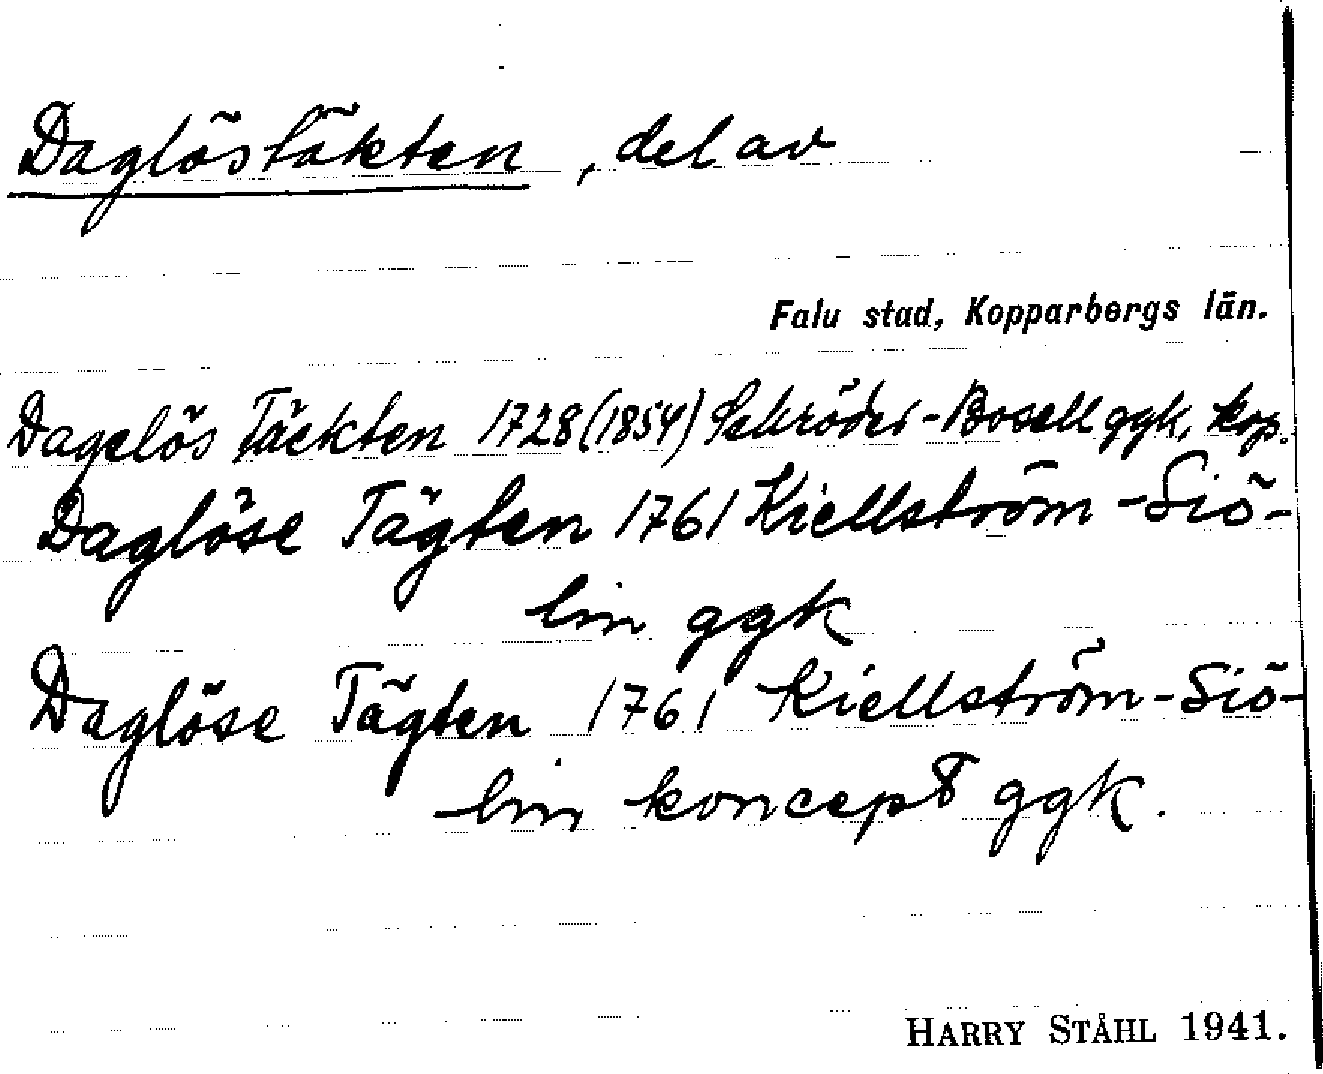 Daglöstäkten, del av
Falu stad, Kopparbergs län.
Dagelös Täckten 1728 (1854) Schröder-Bosell ggk, kop.
Daglöse Tägten 1761 Kiellström-Siö-
lin ggk
Daglöse Tägten 1761 Kiellström-Siö-
lin koncept ggk.
HARRY STÅHL 1941.